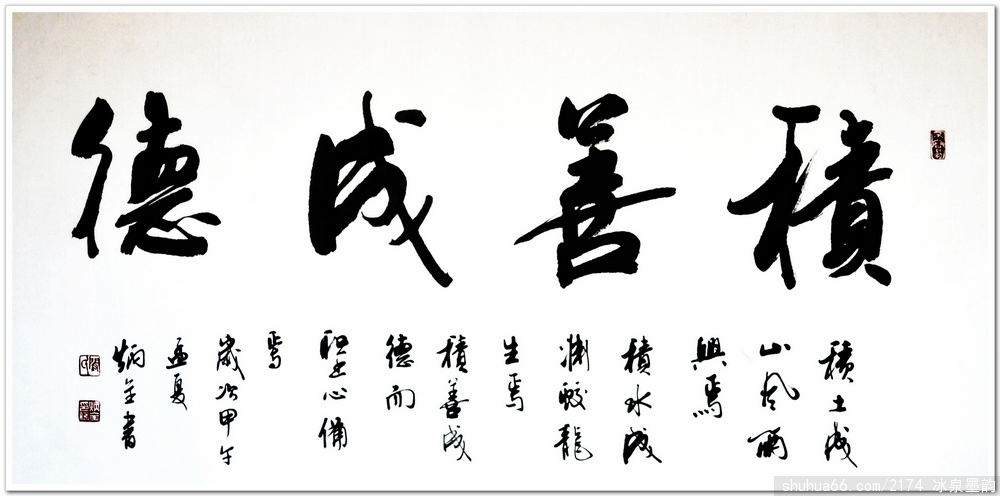 積善成德
積土成
山風雨
興焉
積水成
淵蛟龍
生焉
積善成
德而
聖心備
焉
歲次甲午
孟夏
炳全書
shuhua66.com/2174 冰泉墨韵